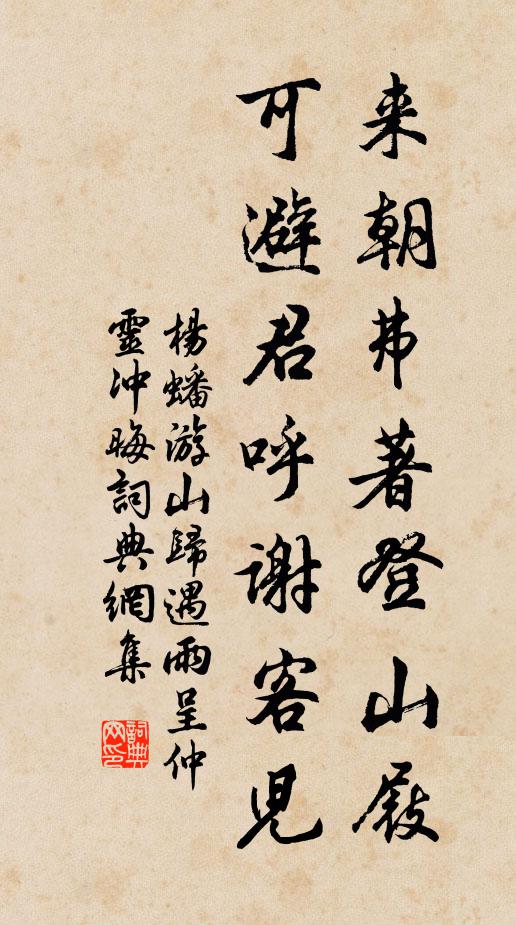 来朝弗著登山屐
可避君呼谢客児
楊蟠游山歸遇雨呈仲
靈冲晦詞典網集
詞典网印